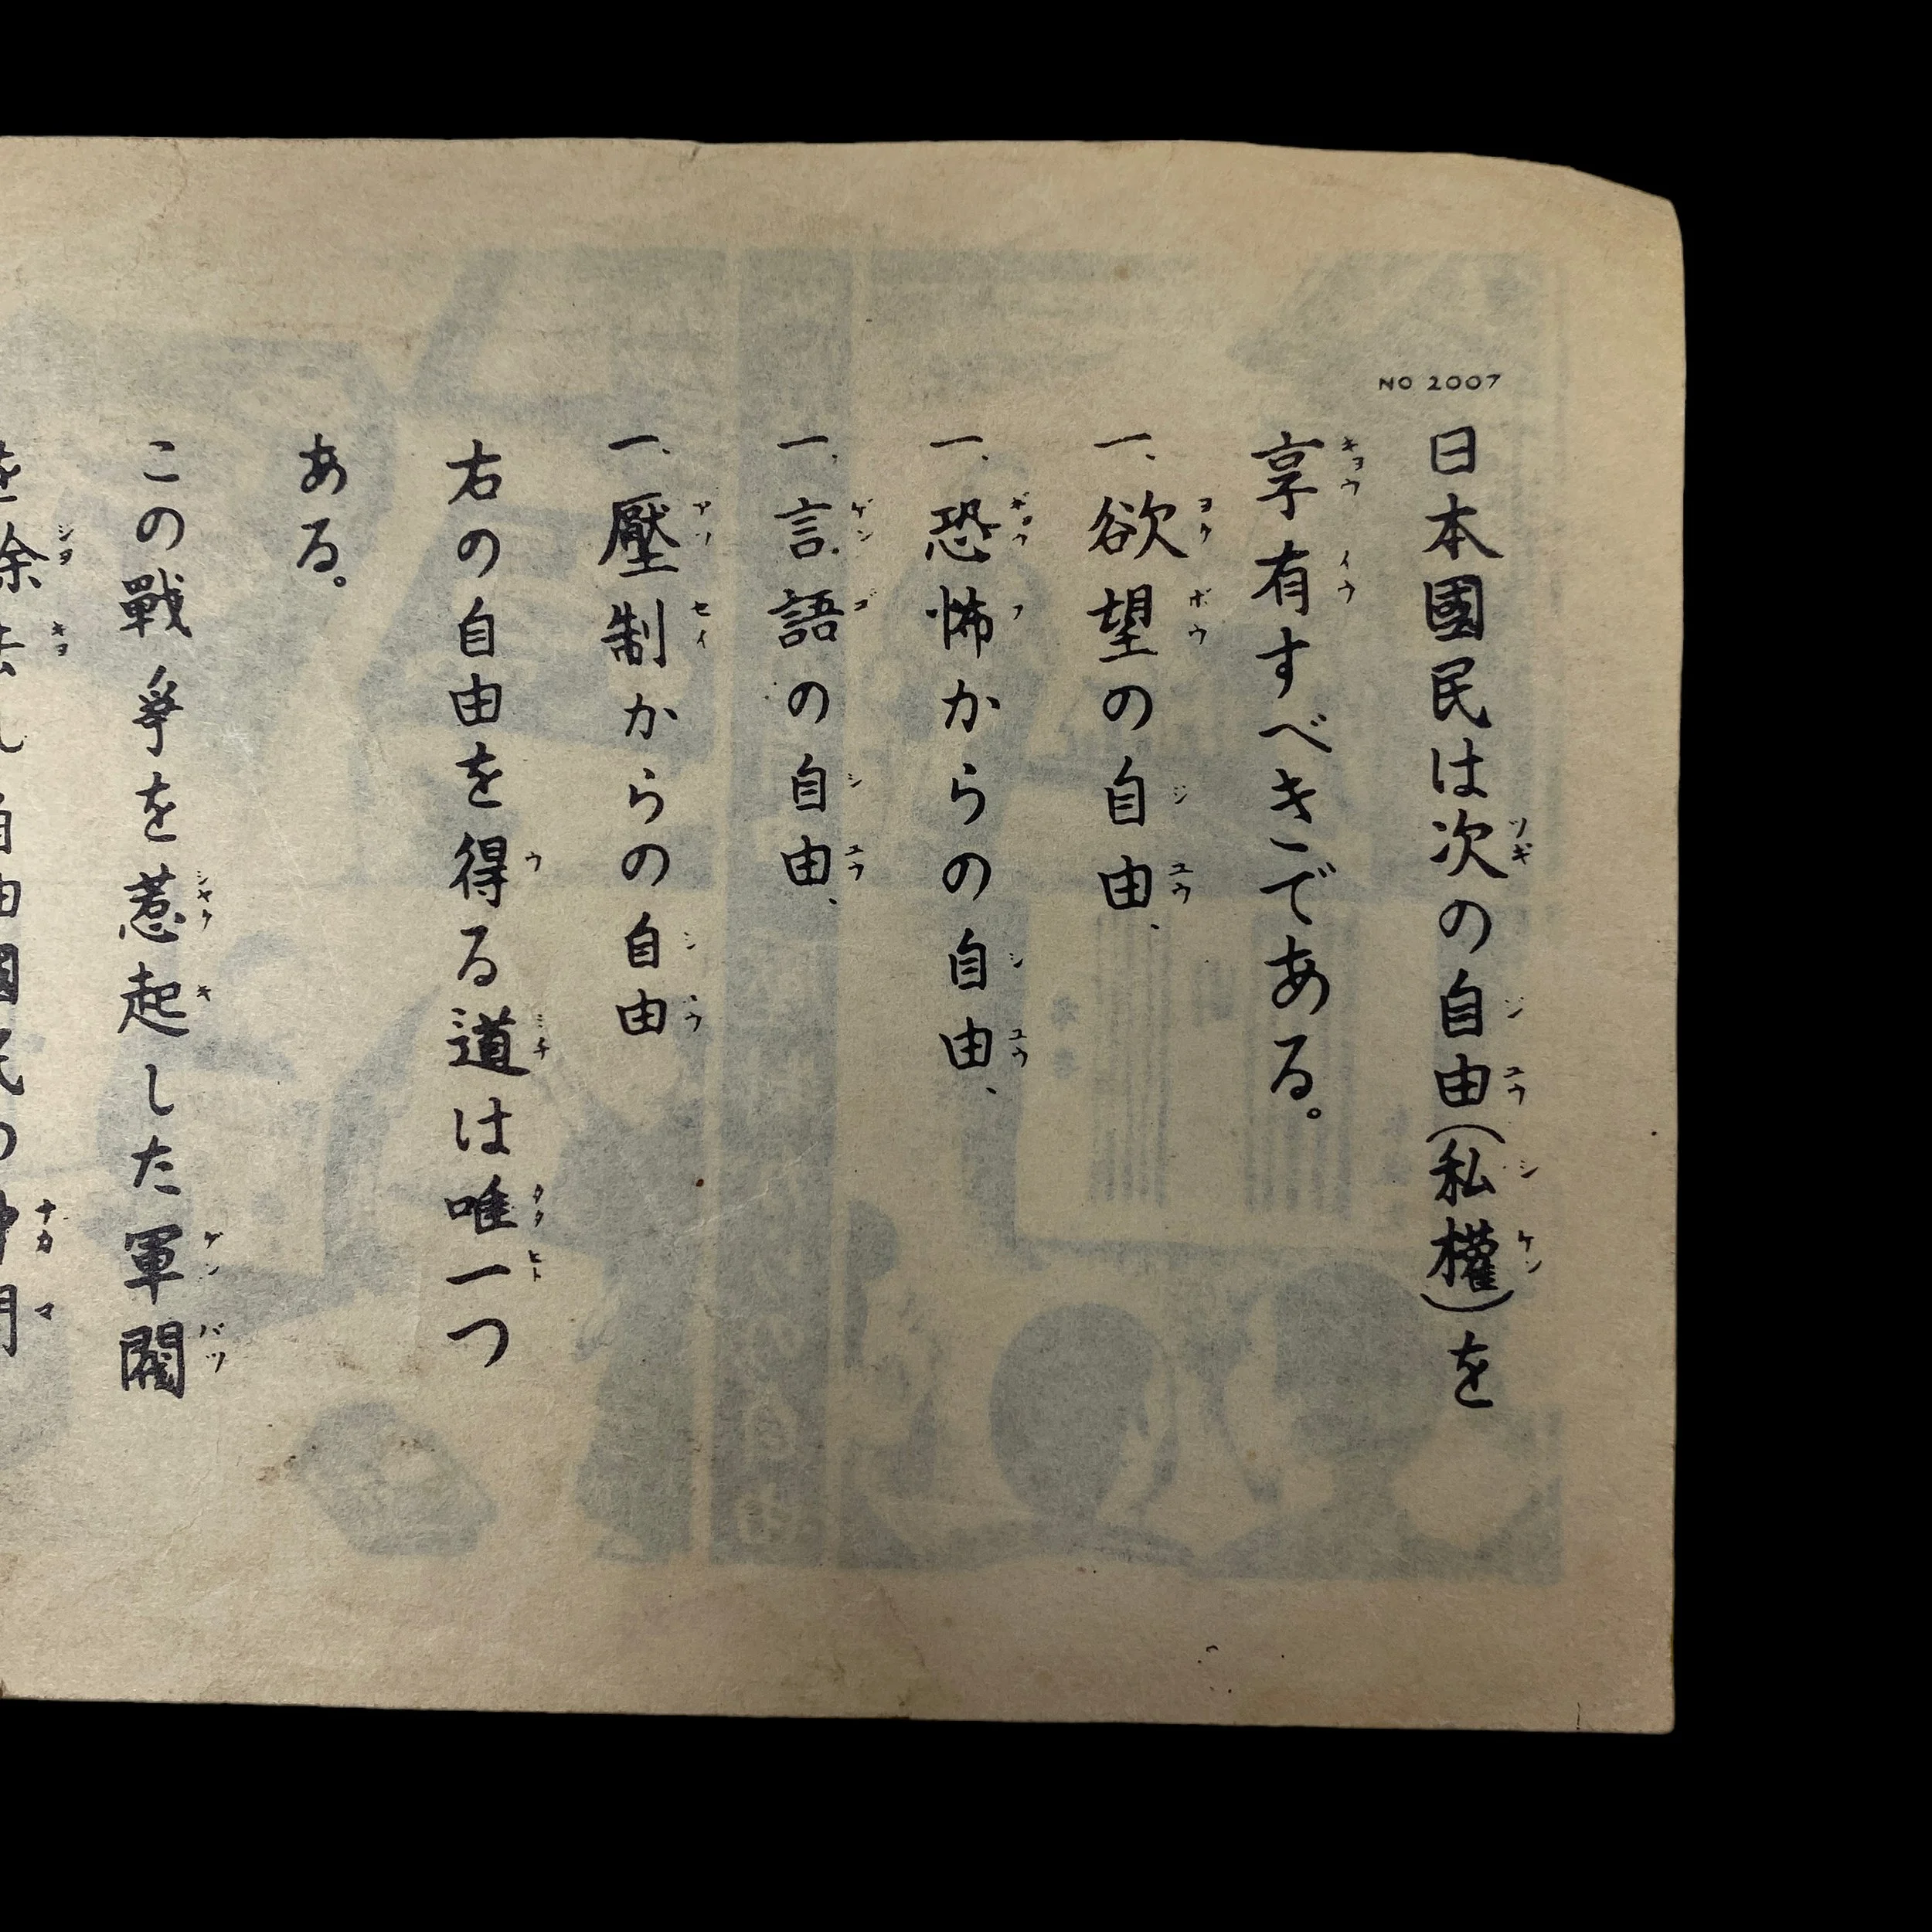 NO 2007
日本國民は次の自由(私權)を
享有すべきである。
一、欲望の自由、
一、恐怖からの自由、
一、言語の自由、
一、壓制からの自由
右の自由を得る道は唯一つ
ある。
この戰爭を惹起した軍閥
を除去し自由國民の仲間